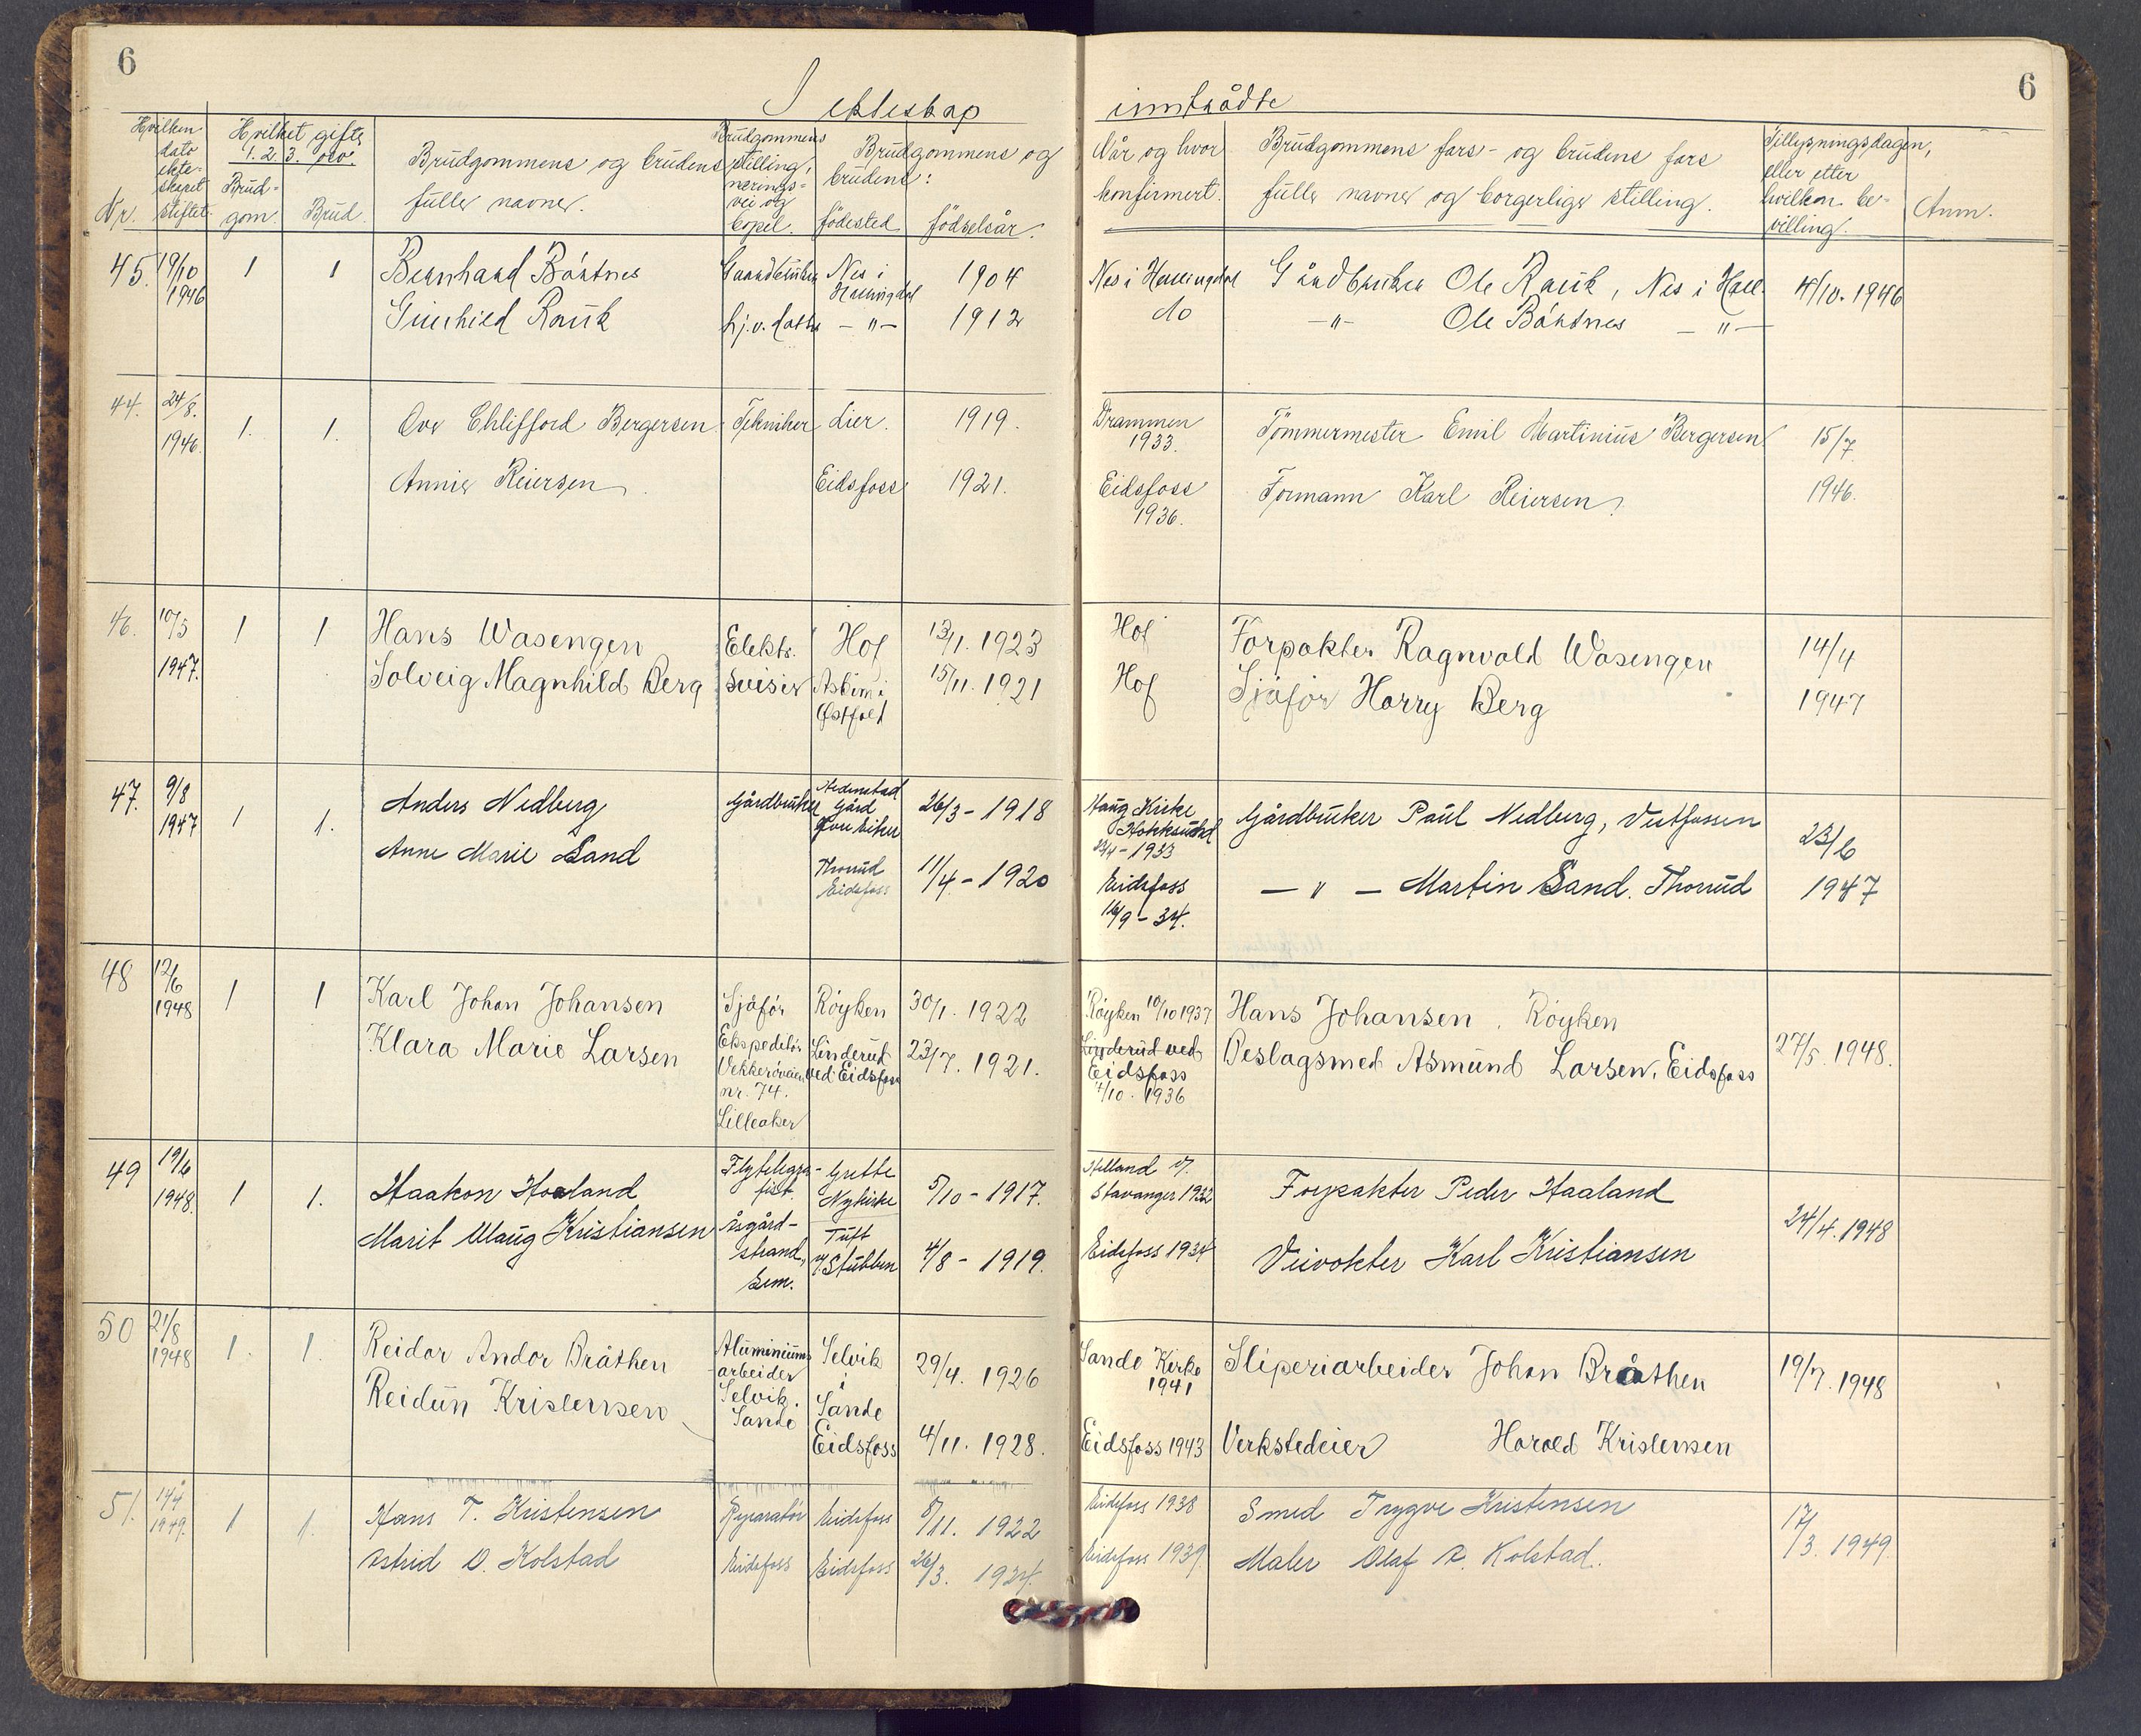 6
6
I ekteskap inntrådte
Nr.
Hvilken dato ekteskapet stiftet.
Hvilket gifte, 1. 2. 3. osv.
Brudgom.
Brud.
Brudgommens og brudens fulle navne.
Brudgommens stilling, næringsvei og bopel.
Brudgommens og brudens:
fødested
fødselsår.
Når og hvor konfirmert.
Brudgommens fars- og brudens fars fulle navne og borgerlige stilling.
Tillysningsdagen, eller etter hvilken bevilling.
Anm.
45. 19/10 1946 1 1 Bernhard Bórtnes Gaardbruker Nes i Hallingdal 1904 Nes i Hallingdal Gårdbruker Ole Rauk, Nes i Hall. 4/10. 1946
Gunhild Rauk hj.v. datter — " — 1912 do — " — Ole Bórtnes — " —
44. 24/8. 1946. 1. 1. Ove Chlifford Bergersen Tekniker Lier. 1919. Drammen 1933. Tømmermester Emil Martinius Bergersen 15/7 1946.
Annie Reiersen. Eidsfoss 1921. Eidsfoss 1936. Formann Karl Reiersen.
46. 10/5 1947. 1 1 Hans Wasengen Elektr. Hof 13/1. 1923 Hof Forpakter Ragnvald Wasengen 14/4 1947
Solveig Magnhild Berg svisir Askim i Østfold 15/11. 1921 Hof Sjåfør Harry Berg
47. 9/8 1947 1 1. Anders Nedberg Gårdbruker gård 26/3 - 1918 Haug Kirke Hokksund 1933 Gårdbruker Paul Nedberg, Vestfossen 23/6 1947
Anne Marie Sand Thorrud Eidsfoss 11/4 - 1920 Eidsfoss 16/9 - 34. — " — Martin Sand. Thorrud
48 12/6 1948 1 1 Karl Johan Johansen Sjåfør Røyken 30/1. 1922 Røyken 10/10 1937 Hans Johansen, Røyken 27/5 1948.
Klara Marie Larsen Ekspeditør Vekkerøveien nr. 74. Lilleaker Linderud ved Eidsfoss 23/7. 1921. Linderud ved Eidsfoss 4/10. 1936 Beslagsmed Asmund Larsen, Eidsfoss
49 19/6 1948. 1 1. Haakon Haaland Flytelegrafist. Grette Nykirke 5/10 - 1917. Helland v. Stavanger 1932 Forpakter Peder Haaland 24/4. 1948
Marit Haug Kristiansen Åsgårdstrand, Sem. Tuft v/ Stubben 4/8 - 1919. Eidsfoss 1934 Veivokter Karl Kristiansen
50 21/8 1948 1. 1. Reidar Andor Bråthen Aluminiumsarbeider Selvik. Sande Selvik i Sande 29/4. 1926 Sande Kirke 1941 Sliperiarbeider Johan Bråthen 19/7. 1948
Reidun Kristensen Eidsfoss 4/11. 1928. Eidsfoss 1943 Verkstedeier Harald Kristensen
51. 14/4 1949. 1 1. Hans T. Kristensen Reparatør Eidsfoss 5/11. 1922 Eidsfoss 1938 Smed Trygve Kristensen 17/3. 1949
Astrid O. Kolstad Eidsfoss Eidsfoss 26/3. 1924. Eidsfoss 1939. Maler Olaf A. Kolstad.